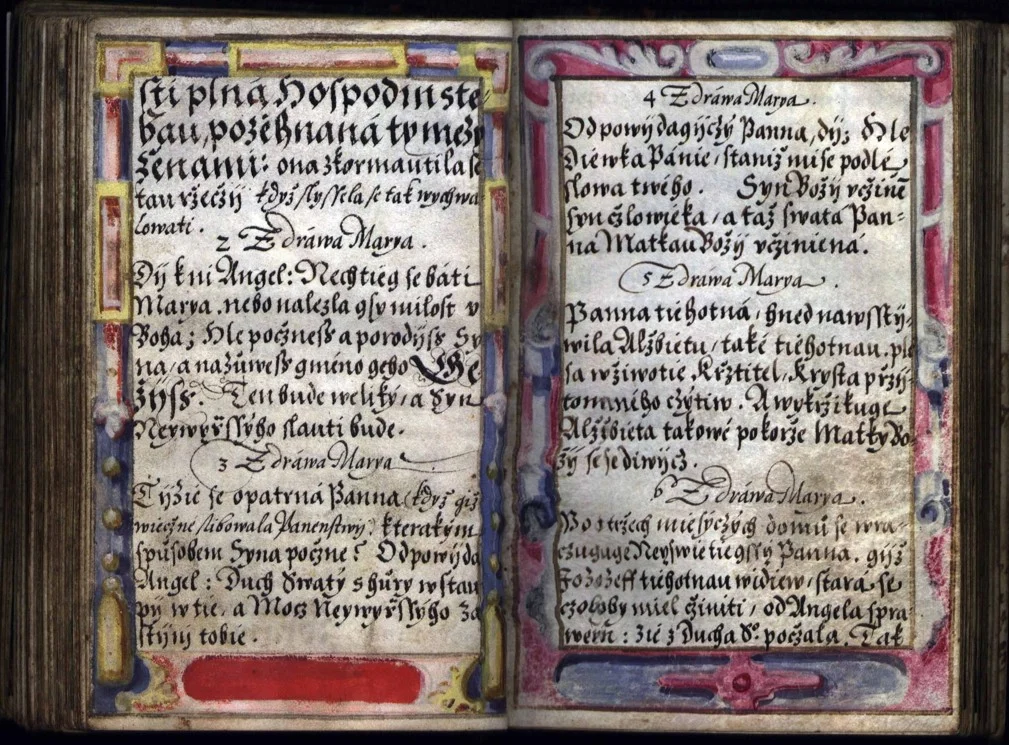 sti plná Hospodin ste-
bau, požehnaná ty mezy
Ženami: ona zkormautila se
tau ržečzij když slyssela se tak wychwa-
lowati.
2 Zdráwa Marya.
Dij k ni Angel: Nechtieg se báti
Marya, nebo nalezla gsy milost v
Boha; Hle počzness a porodijss Sy-
na, a nazůwess gméno geho Ge-
žijss. Ten bude weliký, a Syn
Neywyžssyho slauti bude.
3 Zdráwa Marya
Tijžie se opatrná Panna (když giž
wiečzne slibowala Panenstwij) kterakým
spůsobem Syna počzne? Odpowijda
Angel: Duch Swatý s hůry wstau-
pij w tie, a Mocz Neywyžssyho za-
stijnj tobie.
4 Zdráwa Marya.
Odpowijdagijczý Panna, dij; Hle
Diewka Pánie, staniž mi se podlé
slowa twého. Syn Božij včžinen
syn čzlowieka, a táž swata Pan-
na Matkau Božij včžiniená.
5 Zdráwa Marya.
Panna tiehotná, hned nawsstij-
wila Alžbietu, také tiehotnau, ple-
sa w žiwotie Krztitel, Krysta przij-
tomného czytiw. A wykržikuge
Alžbieta takowé pokorže Matky Bo-
žij se se diwijcz.
6 Zdráwa Marya.
Po tržech miesyczých domů se wra-
czugage Neyswietiegssy Panna, gijž
Jozeff tiehotnau widiew, stara se
czoby miel čziniti, od Angela spra-
wen: žie z Ducha S° počzala. Tak